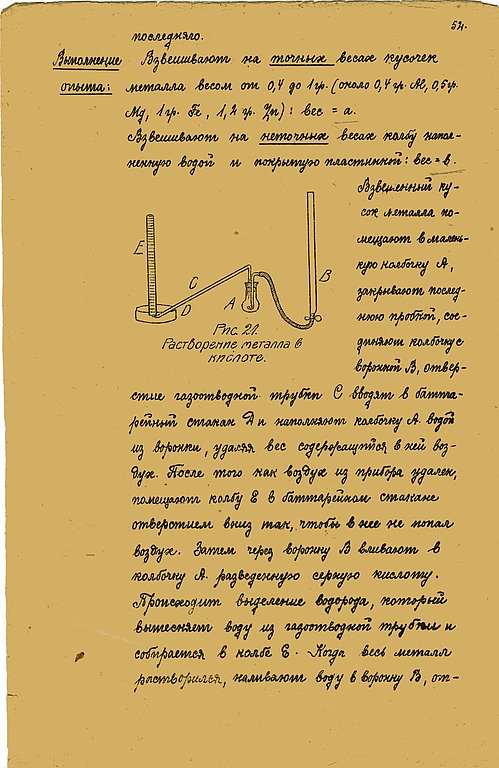 52.
последняго.
Выполнение Взвешивают на точных весах кусочек
опыта: металла весом от 0,4 до 1 гр. (около 0,4 гр. Al, 0,5 гр.
Mg, 1 гр. Fe, 1,2 гр. Zn): вес = a.
Взвешивают на неточных весах колбу напол-
ненную водой и покрытую пластинкой: вес = b.
Взвешенный ку-
сок металла по-
мещают в малень-
кую колбочку A,
закрывают послед-
нюю пробкой, сое-
диняют колбочку с
воронкой B, отвер-
E
C
D
A
B
Рис. 21.
Растворение металла в
кислоте.
стие газоотводной трубки C вводят в батта-
рейный стакан D и наполняют колбочку A водой
из воронки, удаляя вес содержащийся в ней воз-
дух. После того как воздух из прибора удален,
помещают колбу E в баттарейном стакане
отверстием вниз так, чтобы в нее не попал
воздух. Затем через воронку B вливают в
колбочку A. разведенную серную кислоту.
Происходит выделение водорода, который
вытесняет воду из газоотводной трубки и
собирается в колбе E. Когда весь металл
растворился, наливают воду в воронку B, от-